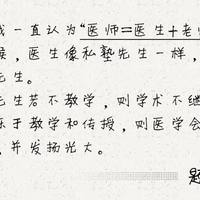 我一直认为“医师=医生+老师
候，医生像私塾先生一样，
先生。
先生若不教学，则学术不继
乐于教学和传授，则医学会
，并发扬光大。
题